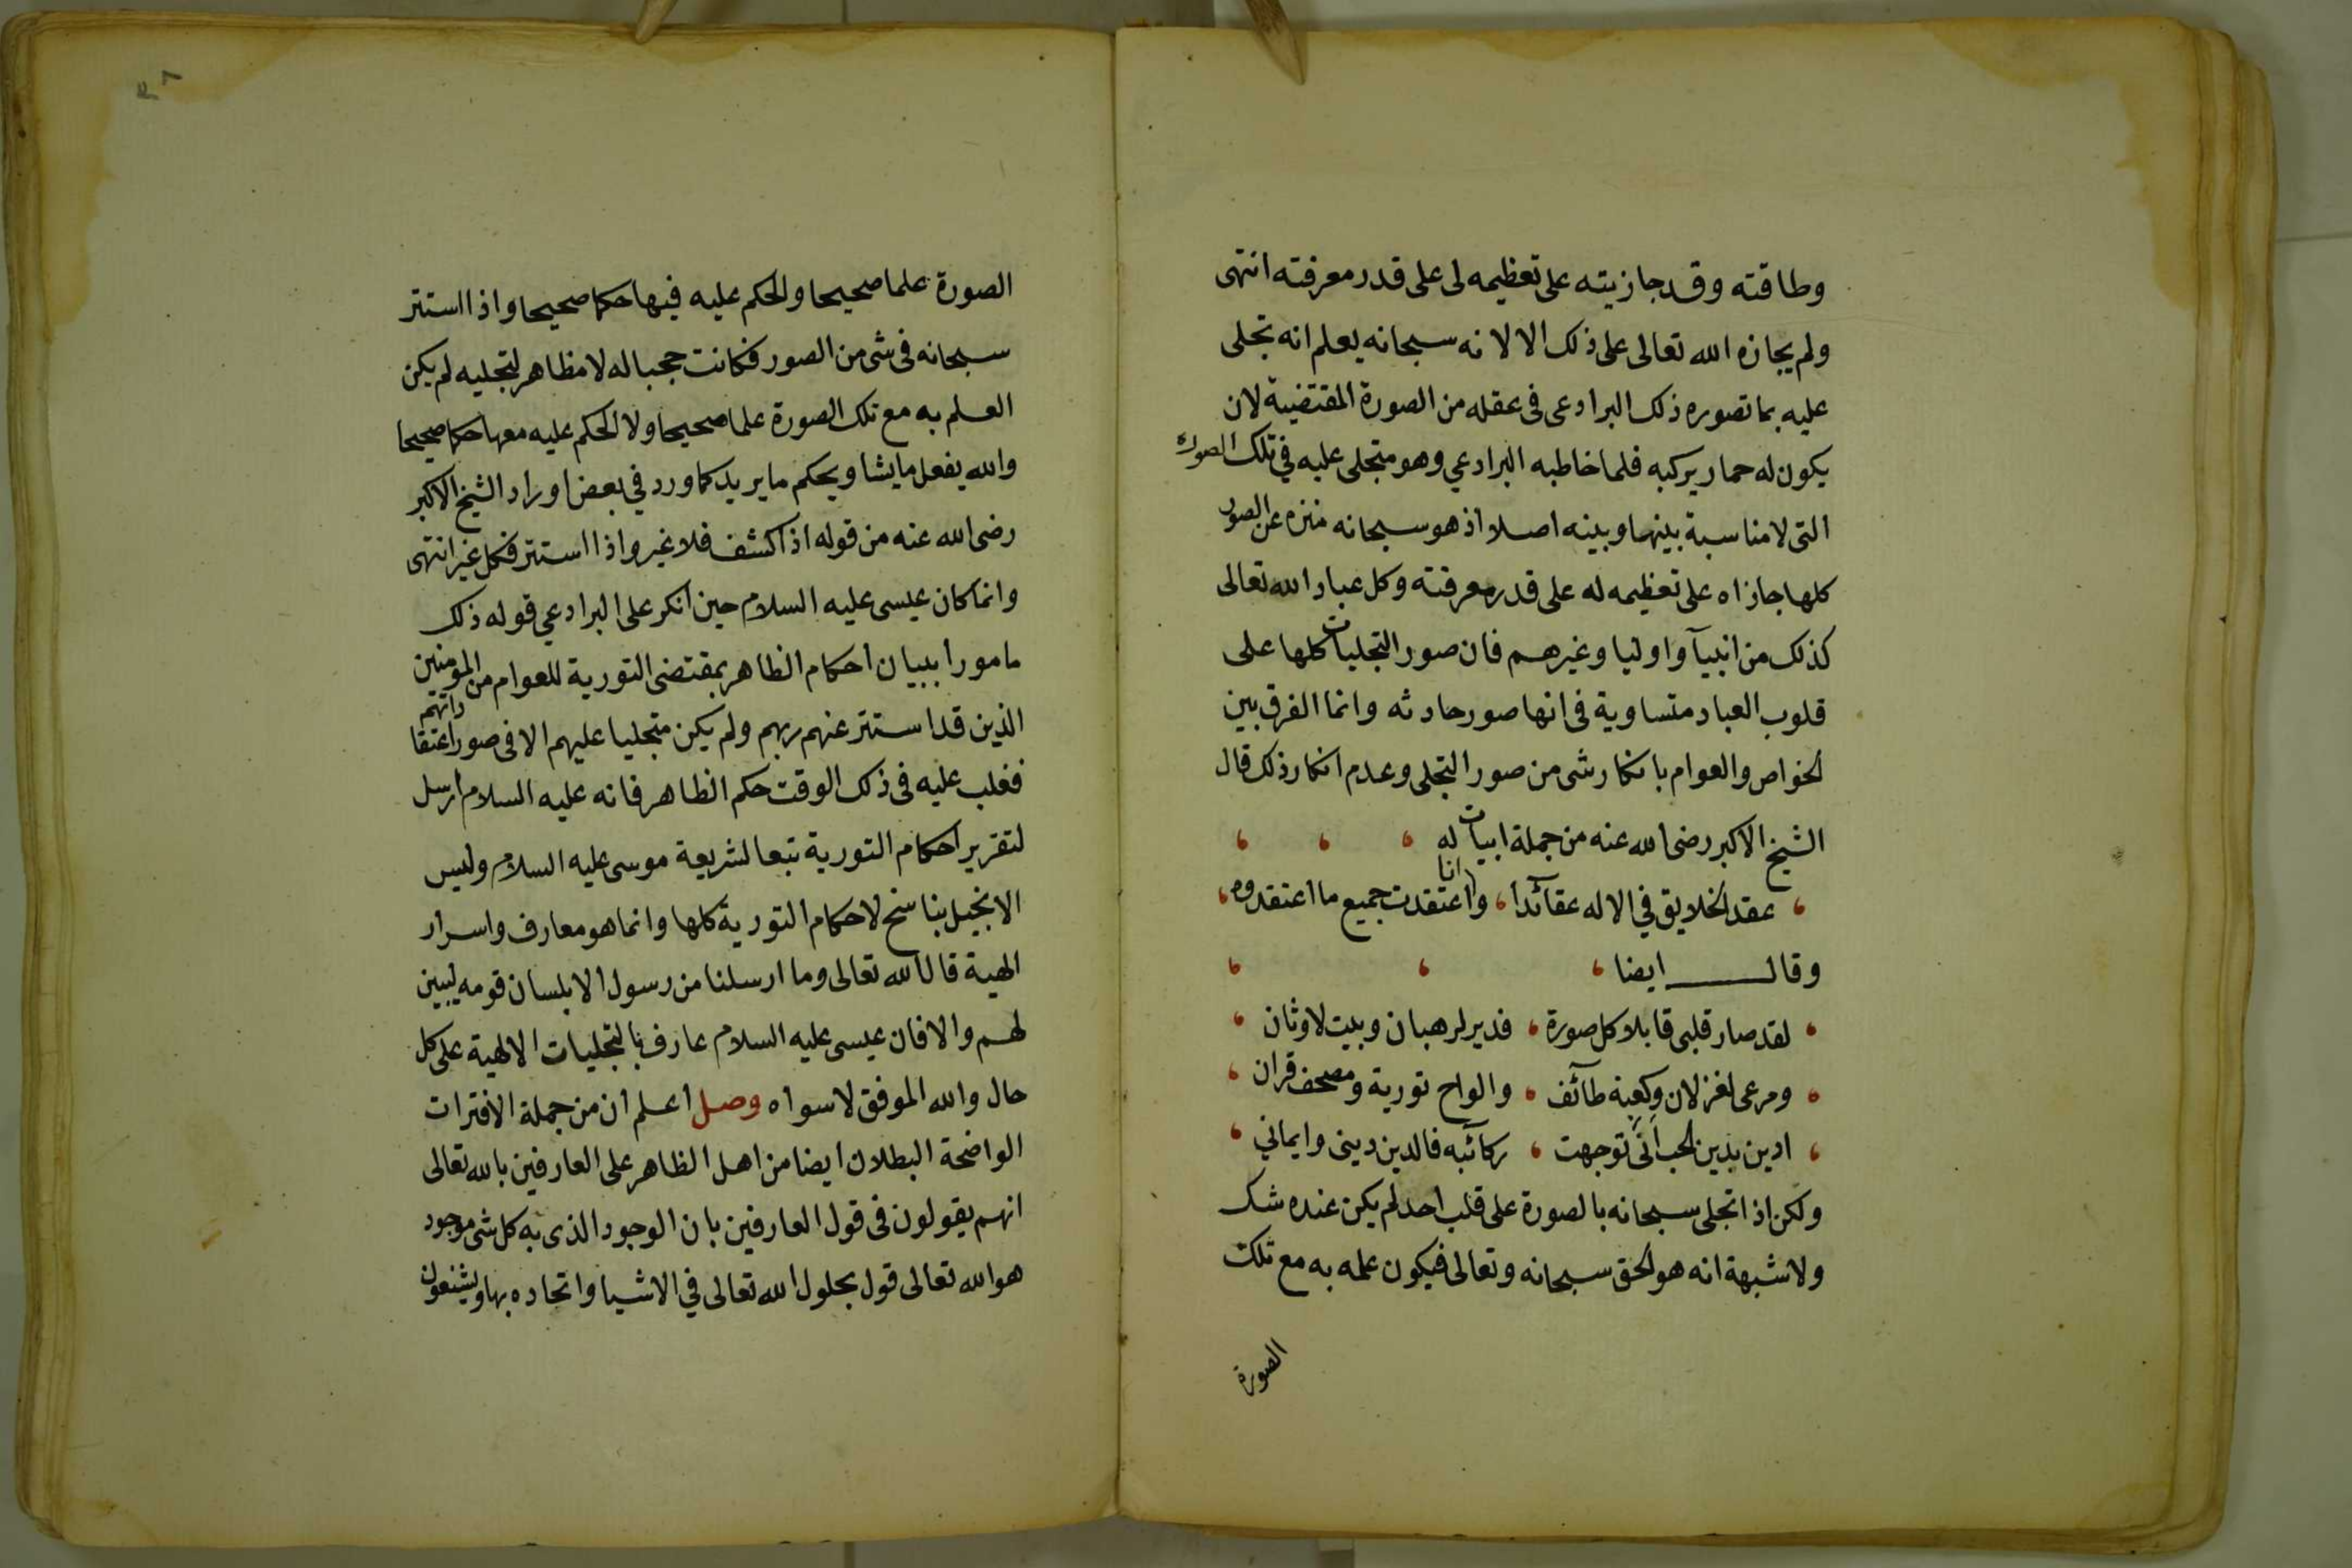 وطاقته وقد جازيته على تعظيمه لى على قدر معرفته انتهى
ولم يجازه الله تعالى على ذلك الا لانه سبحانه يعلم انه تجلى
عليه بما تصوره ذلك البرادعى فى عقله من الصورة المقتضية لان
يكون له حمار يركبه فلما خاطبه البرادعي وهو متجلى عليه في تلك الصورة
التى لا مناسبة بينها وبينه اصلا اذ هو سبحانه منزه عن الصور
كلها جازاه على تعظيمه له على قدر معرفته وكل عباد الله تعالى
كذلك من انبيآ واوليا وغيرهم فان صور التجليات كلها على
قلوب العباد متساوية فى انها صور حادثه وانما الفرق بين
الخواص والعوام بانكار شى من صور التجلى وعدم انكار ذلك قال
الشيخ الاكبر رضى الله عنه من جملة ابيات له
عقد الخلايق في الاله عقآئدا وانا اعتقدت جميع ما اعتقدوه
وقال ايضا
لقد صار قلبى قابلا كل صورة فدير لرهبان وبيت لاوثان
ومرعى لغزلان وكعبة طآئف والواح تورية ومصحف قران
ادين بدين الحب انى توجهت ركآئبه فالدين دينى وايماني
ولكن اذا تجلى سبحانه بالصورة على قلب احد لم يكن عنده شك
ولا شبهة انه هو الحق سبحانه وتعالى فيكون علمه به مع تلك
الصورة
٣٨
الصورة علما صحيحا والحكم عليه فيها حكما صحيحا واذا استتر
سبحانه فى شى من الصور فكانت حجبا له لا مظاهر لتجليه لم يكن
العلم به مع تلك الصورة علما صحيحا ولا الحكم عليه معها حكما صحيحا
والله يفعل ما يشا ويحكم ما يريد كما ورد في بعض اوراد الشيخ الاكبر
رضى الله عنه من قوله اذا كشف فلا غير واذا استتر فكل غير انتهى
وانما كان عيسى عليه السلام حين انكر على البرادعي قوله ذلك
مامورا ببيان احكام الظاهر بمقتضى التورية للعوام من المومنين
الذين قد استتر عنهم ربهم ولم يكن متجليا عليهم الا فى صور اعتقاداتهم
فغلب عليه فى ذلك الوقت حكم الظاهر فانه عليه السلام ارسل
لتقرير احكام التورية تبعا لشريعة موسى عليه السلام وليس
الانجيل بناسخ لاحكام التورية كلها وانما هو معارف واسرار
الهية قال الله تعالى وما ارسلنا من رسول الا بلسان قومه ليبين
لهم والا فان عيسى عليه السلام عارف بالتجليات الالهية على كل
حال والله الموفق لا سواه وصل اعلم ان من جملة الافترات
الواضحة البطلان ايضا من اهل الظاهر على العارفين بالله تعالى
انهم يقولون فى قول العارفين بان الوجود الذى به كل شى موجود
هو الله تعالى قول بحلول الله تعالى في الاشيا واتحاده بها ويشنعون